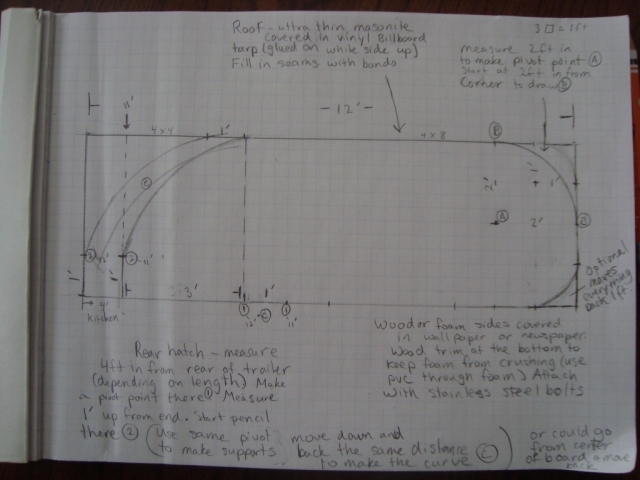 Roof - ultra thin masonite
covered in vinyl Billboard
tarp (glued on white side up)
Fill in seams with bondo
3 □ = 1ft
measure 2ft in
to make pivot point Ⓐ
Start at 2ft in from
Corner to draw Ⓑ
11'
- 12' -
4 x 4
1'
4 x 8
B
2'
1'
1'
A
2'
C
2
2
11'
1'
1'
3'
1'
1
1
12'
11'
Kitchen
optional
moves
everything
back 1ft
Wood or foam sides covered
in wallpaper or newspaper.
Wood trim at the bottom to
keep foam from crushing (use
pvc through foam) Attach
with stainless steel bolts
Rear hatch - measure
4ft in from rear of trailer
(depending on length) Make
a pivot point there ① Measure
1' up from end. Start pencil
there ②
(Use same pivot
to make supports
move down and
back the same distance
to make the curve Ⓒ)
or could go
from center
of board & move
back